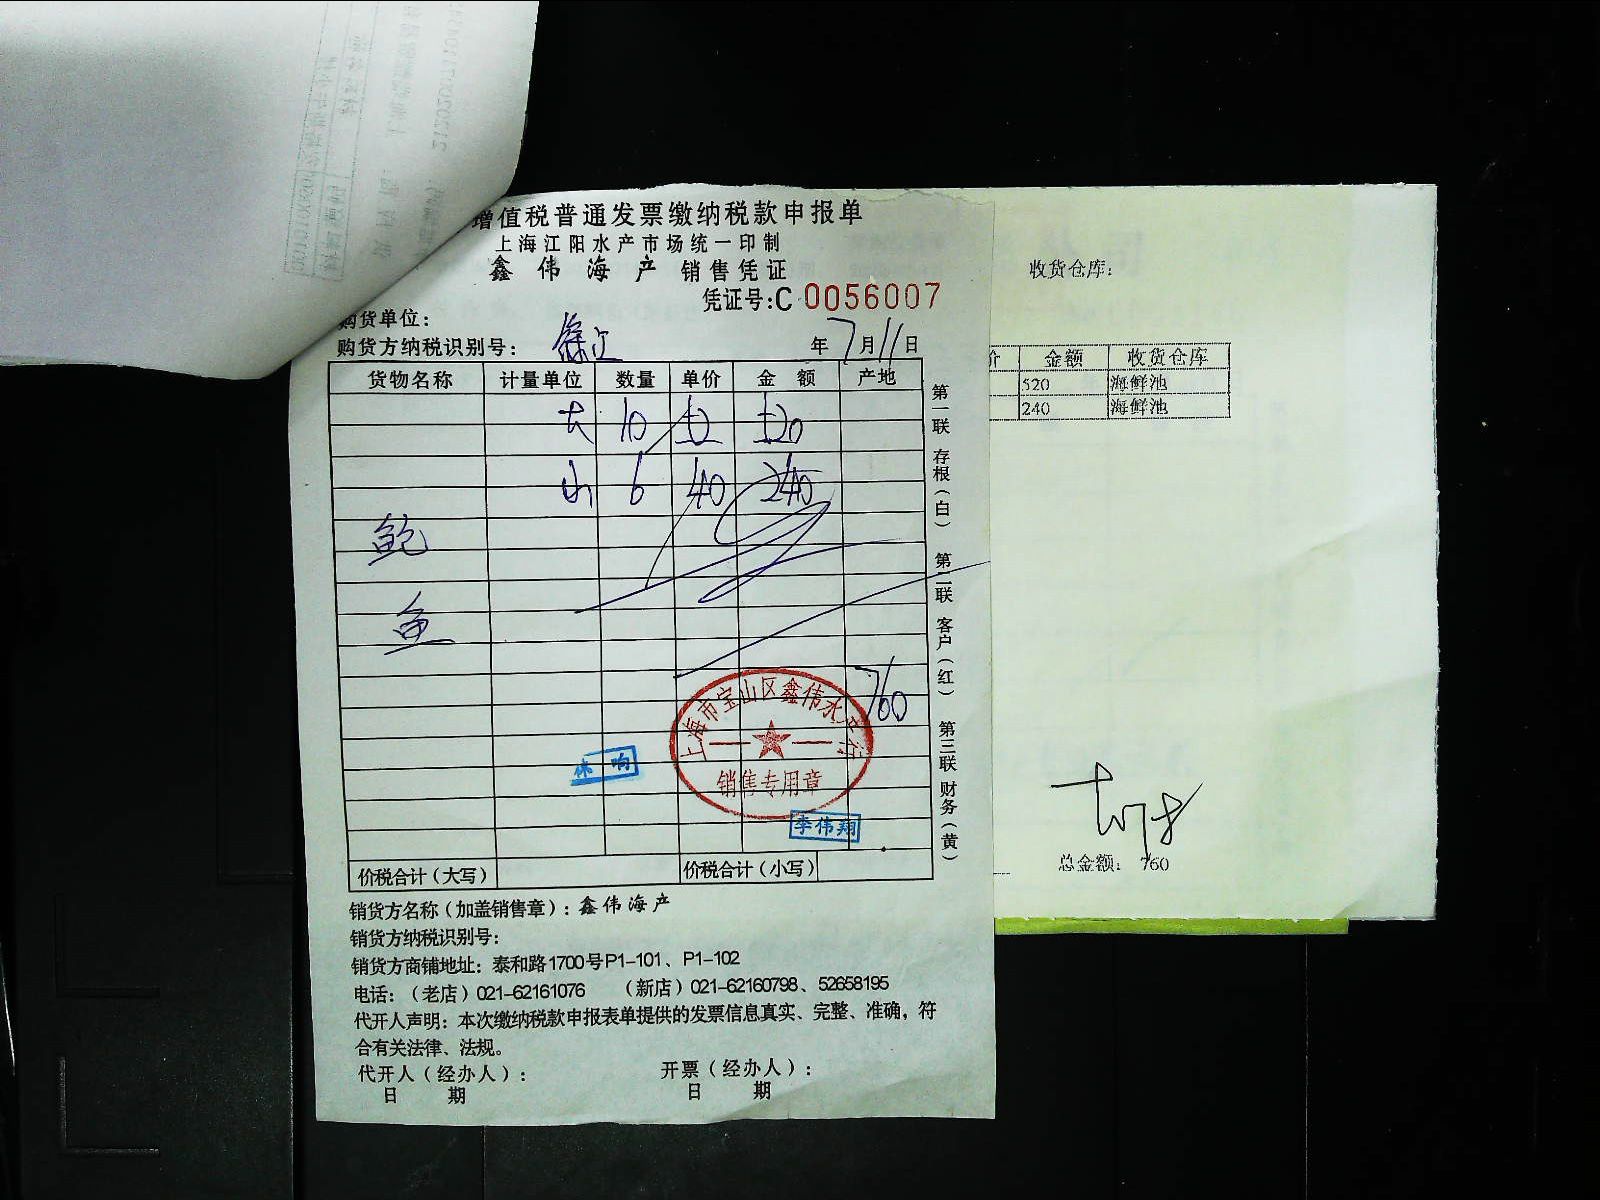 增值税普通发票缴纳税款申报单
上海江阳水产市场统一印制
鑫伟海产 销售凭证
凭证号:C 0056007
购货单位:
购货方纳税识别号: 年7月11日
货物名称 计量单位 数量 单价 金额 产地
大 10
小 6 40 240
鲍
鱼
760
上海市宝山区鑫伟水产行
销售专用章
李伟翔
价税合计(大写) 价税合计(小写)
第一联 存根(白) 第二联 客户(红) 第三联 财务(黄)
销货方名称(加盖销售章): 鑫伟海产
销货方纳税识别号:
销货方商铺地址: 泰和路1700号P1-101、P1-102
电话:(老店)021-62161076 (新店)021-62160798、52658195
代开人声明: 本次缴纳税款申报表单提供的发票信息真实、完整、准确,符
合有关法律、法规。
代开人(经办人): 开票(经办人):
日期 日期
收货仓库:
价 金额 收货仓库
520 海鲜池
240 海鲜池
总金额: 760